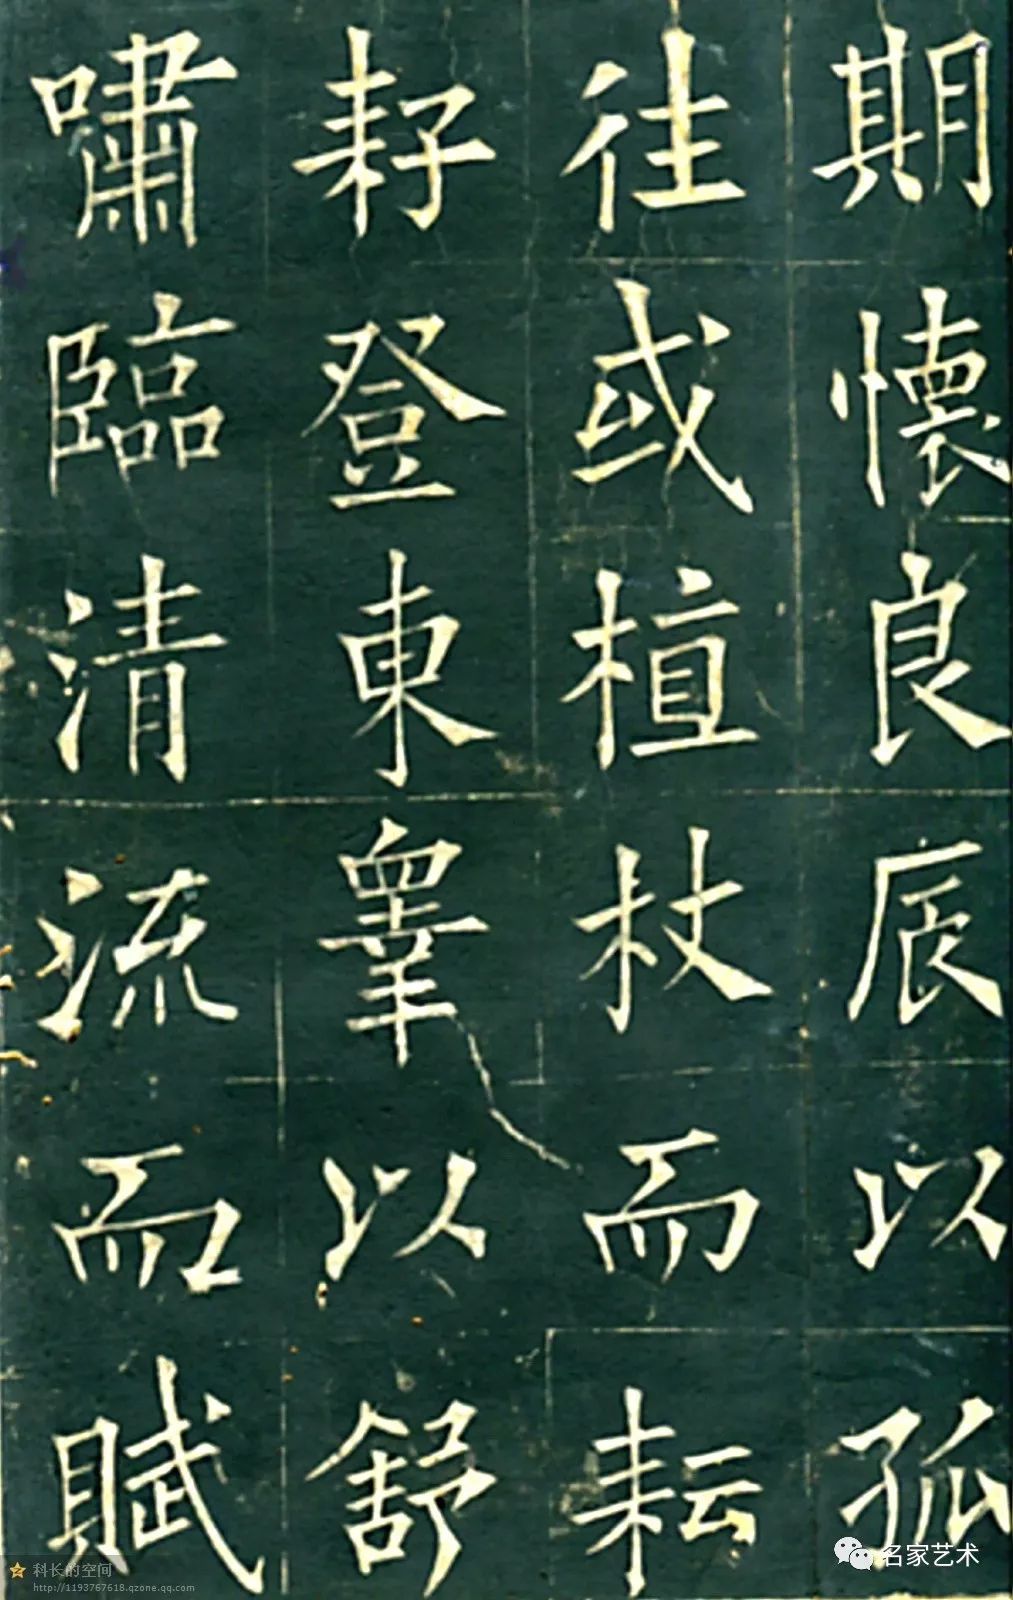 期懷良辰以孤
往或植杖而耘
耔登東皋以舒
嘯臨清流而賦
名家艺术
科长的空间
http://1193767618.qzone.qq.com